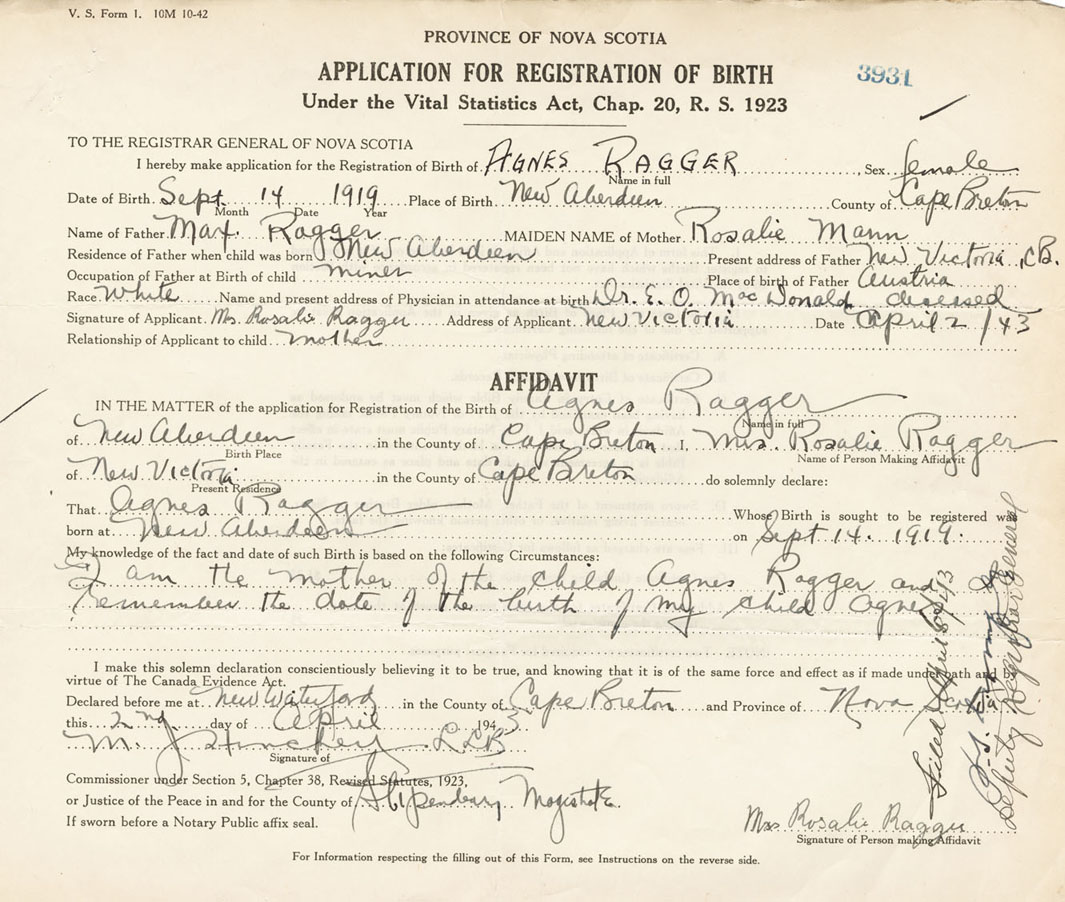 V. S. Form 1. 10M 10-42
PROVINCE OF NOVA SCOTIA
APPLICATION FOR REGISTRATION OF BIRTH 3931
Under the Vital Statistics Act, Chap. 20, R. S. 1923
TO THE REGISTRAR GENERAL OF NOVA SCOTIA
I hereby make application for the Registration of Birth of AGNES RAGGER Sex female
Name in full
Date of Birth Sept. 14 1919 Place of Birth New Aberdeen County of Cape Breton
Month Date Year
Name of Father Max Ragger MAIDEN NAME of Mother Rosalie Mann
Residence of Father when child was born New Aberdeen Present address of Father New Victoria, C.B.
Occupation of Father at Birth of child miner Place of birth of Father Austria
Race White Name and present address of Physician in attendance at birth Dr. E. O. MacDonald deceased
Signature of Applicant Mrs. Rosalie Ragger Address of Applicant New Victoria Date April 2 /43
Relationship of Applicant to child mother
AFFIDAVIT
IN THE MATTER of the application for Registration of the Birth of Agnes Ragger
Name in full
of New Aberdeen in the County of Cape Breton I, Mrs. Rosalie Ragger
Birth Place Name of Person Making Affidavit
of New Victoria in the County of Cape Breton do solemnly declare:
Present Residence
That Agnes Ragger Whose Birth is sought to be registered was
born at New Aberdeen on Sept 14. 1919.
My knowledge of the fact and date of such Birth is based on the following Circumstances:
I am the mother of the child Agnes Ragger and
remember the date of the birth of my child Agnes
I make this solemn declaration conscientiously believing it to be true, and knowing that it is of the same force and effect as if made under oath and by
virtue of The Canada Evidence Act.
Declared before me at New Waterford in the County of Cape Breton and Province of Nova Scotia
this 2nd day of April 1943
M. J. Hinchey LLB
Signature of
Commissioner under Section 5, Chapter 38, Revised Statutes, 1923,
or Justice of the Peace in and for the County of Stipendiary Magistrate
If sworn before a Notary Public affix seal.
Mrs Rosalie Ragger
Signature of Person making Affidavit
For Information respecting the filling out of this Form, see Instructions on the reverse side.
Filed April 8/43
Deputy Registrar General